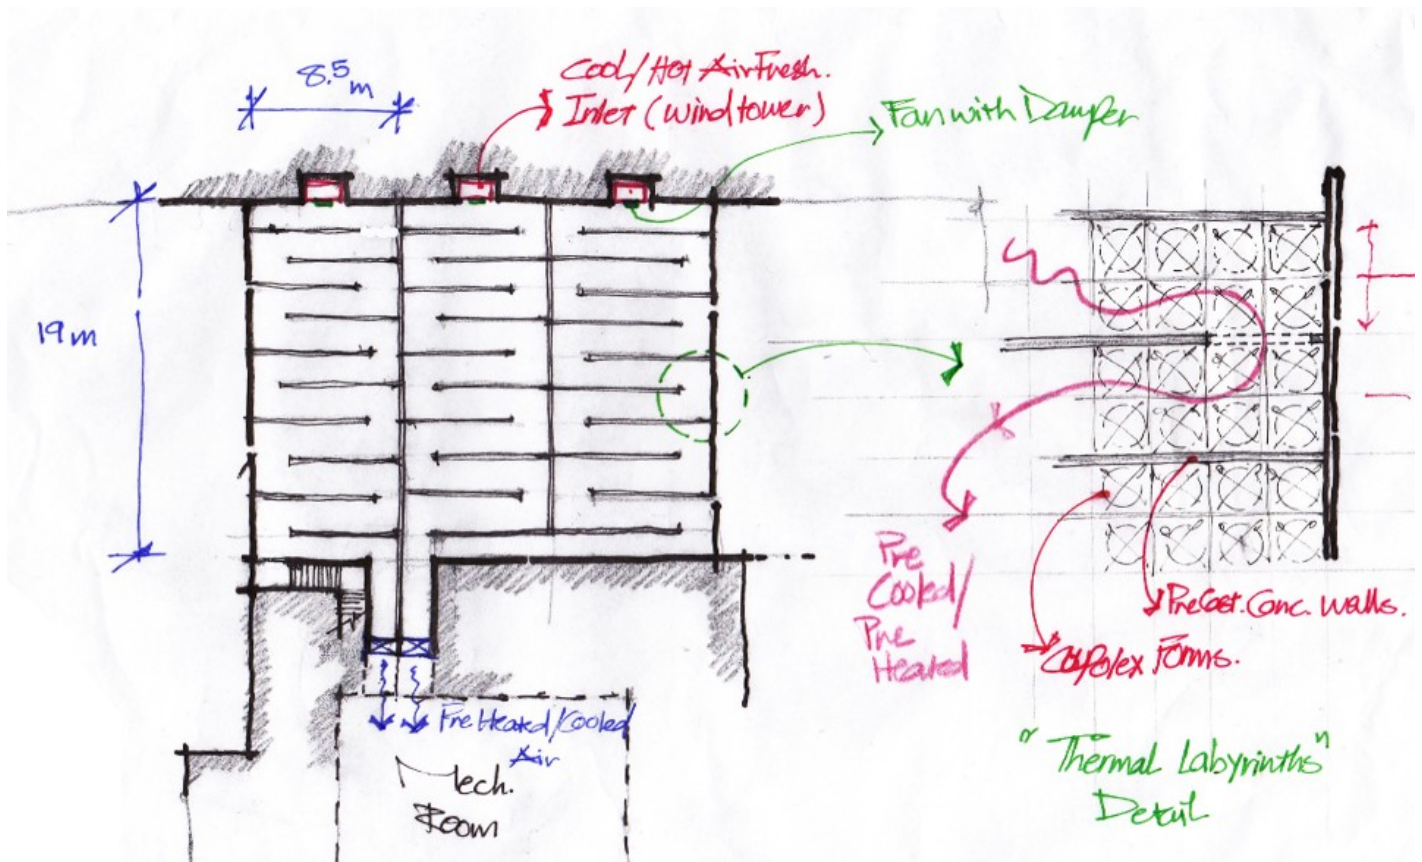 8.5 m
Cool/Hot Air Fresh.
Inlet (wind tower)
Fan with Damper
19 m
Pre
Cooled/
Pre
Heated
PreCast. Conc. walls.
Cupolex Forms.
Pre Heated/Cooled
Air
Mech.
Room
"Thermal Labyrinths"
Detail